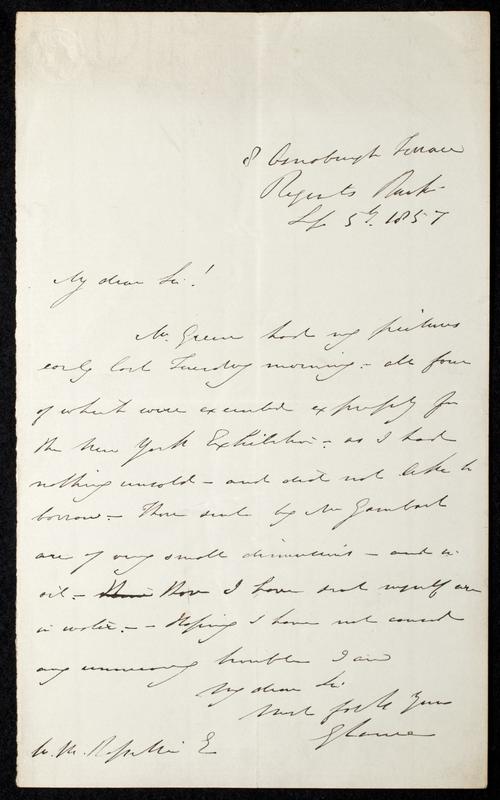 8 Osnaburgh Terrace
Regents Park
Sep 5th. 1857
My dear Sir!
Mr. Green had my pictures
early last Tuesday morning – all four
of which were executed expressly for
the New York Exhibition – as I had
nothing unsold – and did not like to
borrow – Those sent by Mr Gambart
are of very small dimensions – and in
oil – Those I have sent myself are
in water. – Hoping I have not caused
any unnecessary trouble I am
My dear Sir
Most faithfy Yours
G Lance
W. M. Rossetti E